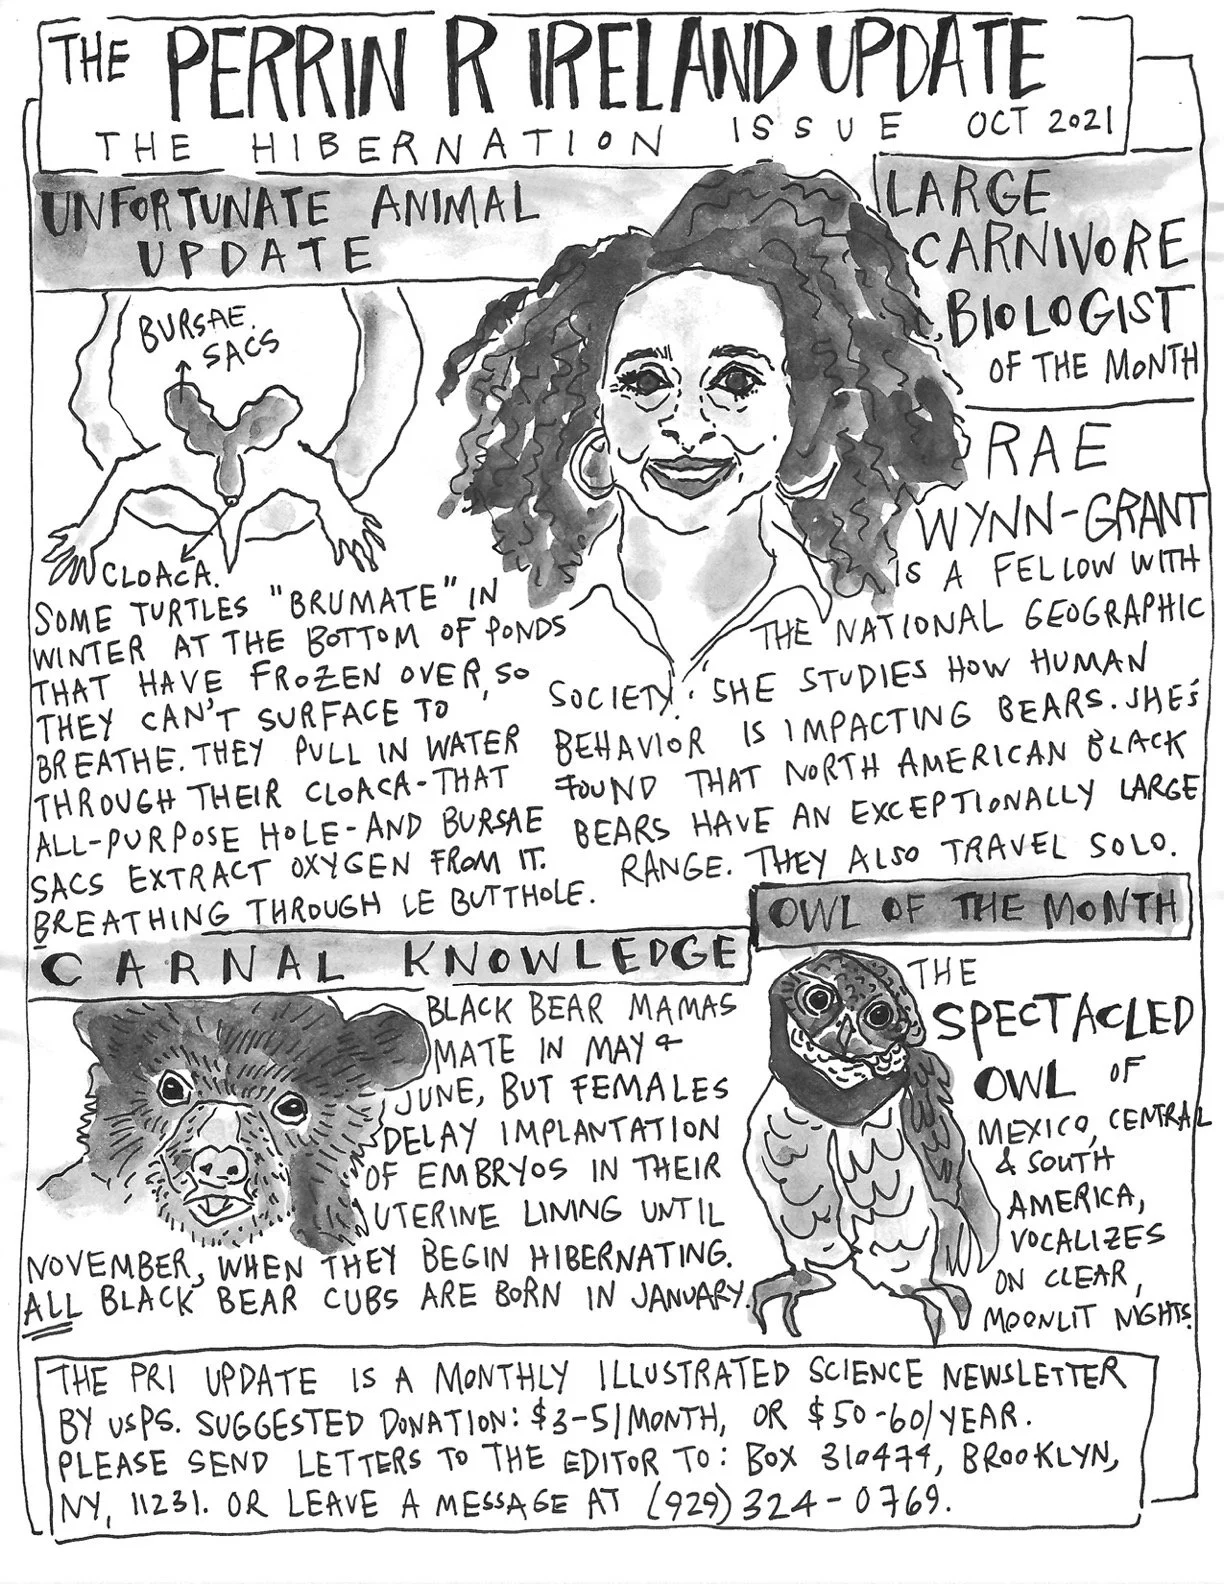 THE PERRIN R IRELAND UPDATE
THE HIBERNATION ISSUE OCT 2021
UNFORTUNATE ANIMAL
UPDATE
BURSAE
SACS
CLOACA.
SOME TURTLES "BRUMATE" IN
WINTER AT THE BOTTOM OF PONDS
THAT HAVE FROZEN OVER, SO
THEY CAN'T SURFACE TO
BREATHE. THEY PULL IN WATER
THROUGH THEIR CLOACA-THAT
ALL-PURPOSE HOLE-AND BURSAE
SACS EXTRACT OXYGEN FROM IT.
BREATHING THROUGH LE BUTTHOLE.
LARGE
CARNIVORE
BIOLOGIST
OF THE MONTH
RAE
WYNN-GRANT
IS A FELLOW WITH
THE NATIONAL GEOGRAPHIC
SOCIETY. SHE STUDIES HOW HUMAN
BEHAVIOR IS IMPACTING BEARS. SHE'S
FOUND THAT NORTH AMERICAN BLACK
BEARS HAVE AN EXCEPTIONALLY LARGE
RANGE. THEY ALSO TRAVEL SOLO.
CARNAL KNOWLEDGE
BLACK BEAR MAMAS
MATE IN MAY &
JUNE, BUT FEMALES
DELAY IMPLANTATION
OF EMBRYOS IN THEIR
UTERINE LINING UNTIL
NOVEMBER, WHEN THEY BEGIN HIBERNATING.
ALL BLACK BEAR CUBS ARE BORN IN JANUARY.
OWL OF THE MONTH
THE
SPECTACLED
OWL OF
MEXICO, CENTRAL
& SOUTH
AMERICA,
VOCALIZES
ON CLEAR,
MOONLIT NIGHTS.
THE PRI UPDATE IS A MONTHLY ILLUSTRATED SCIENCE NEWSLETTER
BY USPS. SUGGESTED DONATION: $3-5/MONTH, OR $50-60/YEAR.
PLEASE SEND LETTERS TO THE EDITOR TO: BOX 310474, BROOKLYN,
NY, 11231. OR LEAVE A MESSAGE AT (929) 324-0769.